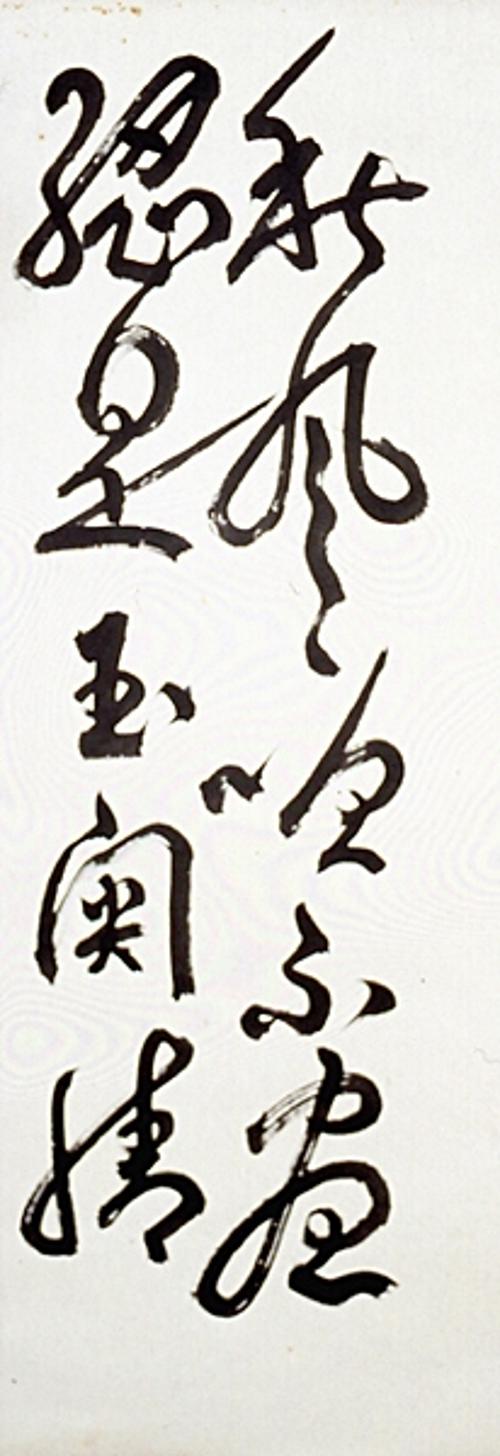 秋風吹不盡
總是玉関情